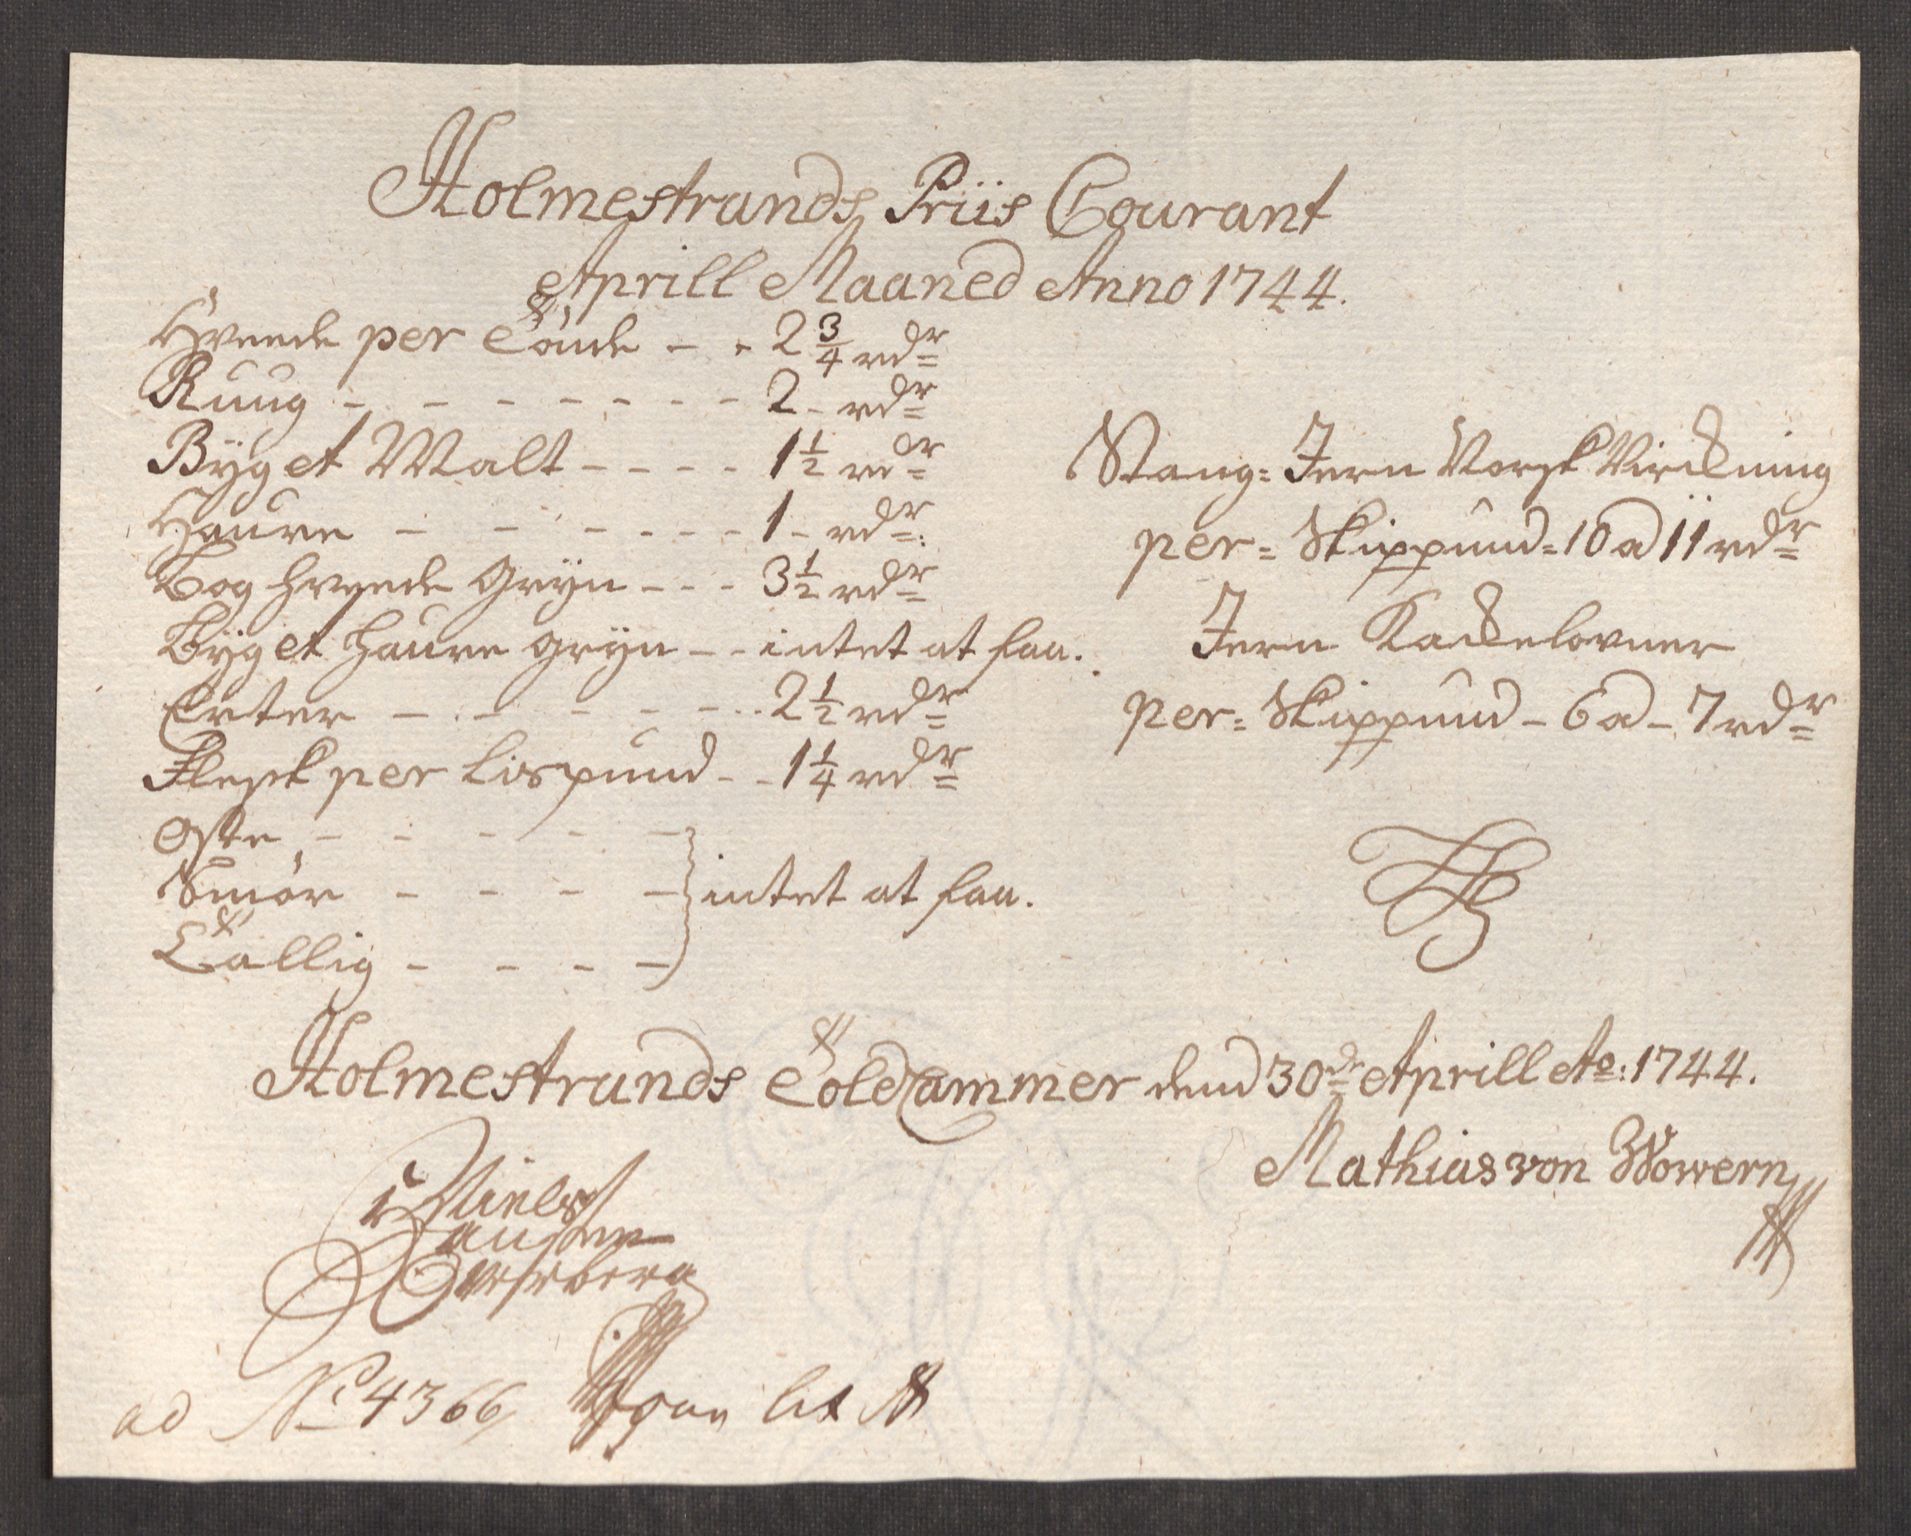 Holmestrands Priis Courant
Aprill Maaned Anno 1744.
Hveede per Tönde - - 2 3/4 rdr
Ruug - - - - - - - 2 - rdr
Byg et Malt - - - - 1 1/2 rdr
Haure - - - - - - 1 - rdr:
Boghveede Gryn - - - 3 1/2 rdr
Byg et Haure gryn - - intet at faa.
Erter - - - - - - 2 1/2 rdr
Flesk per Lispund - - 1 1/4 rdr
Oste - - - - -
Smör - - - - intet at faa.
Tallig - - - -
Stang = Jern Norsk Virckning
per = Skippund = 10 a 11 rdr
Jern Kackelovner
per = Skippund - 6 a - 7 rdr
Holmestrands ToldCammer dend 30de Aprill Ao: 1744.
Mathias von Wowern
Niels
Hansen
ad No 4366